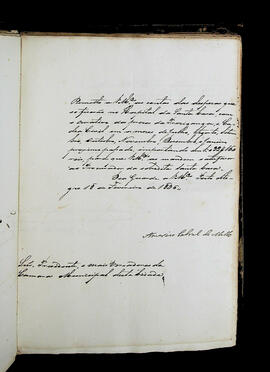 Remetto a V.Sas. as contas das despezas que
se fizerão no Hospital da Santa Casa com
o curativo dos prezos da
Civil em os mezes de Julho, Agosto, Setem
bro, Outubro, Novembro, Dezembro, e Janeiro
proximo passado, importando de
reis, para que V.Sas. se mandem satisfazer
ao Procurador da sobredita Santa Casa.
Deos Guarde a V.Sas. Porto Ale
gre 18 de Fevereiro de
Cabral de Mello
Snrs. Presidente, e mais Vereadores da
Camara Municipal desta Cidade.